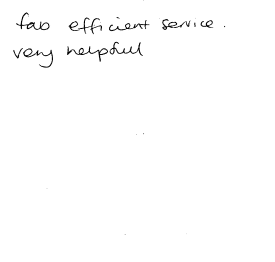 fab efficient service.
very helpful